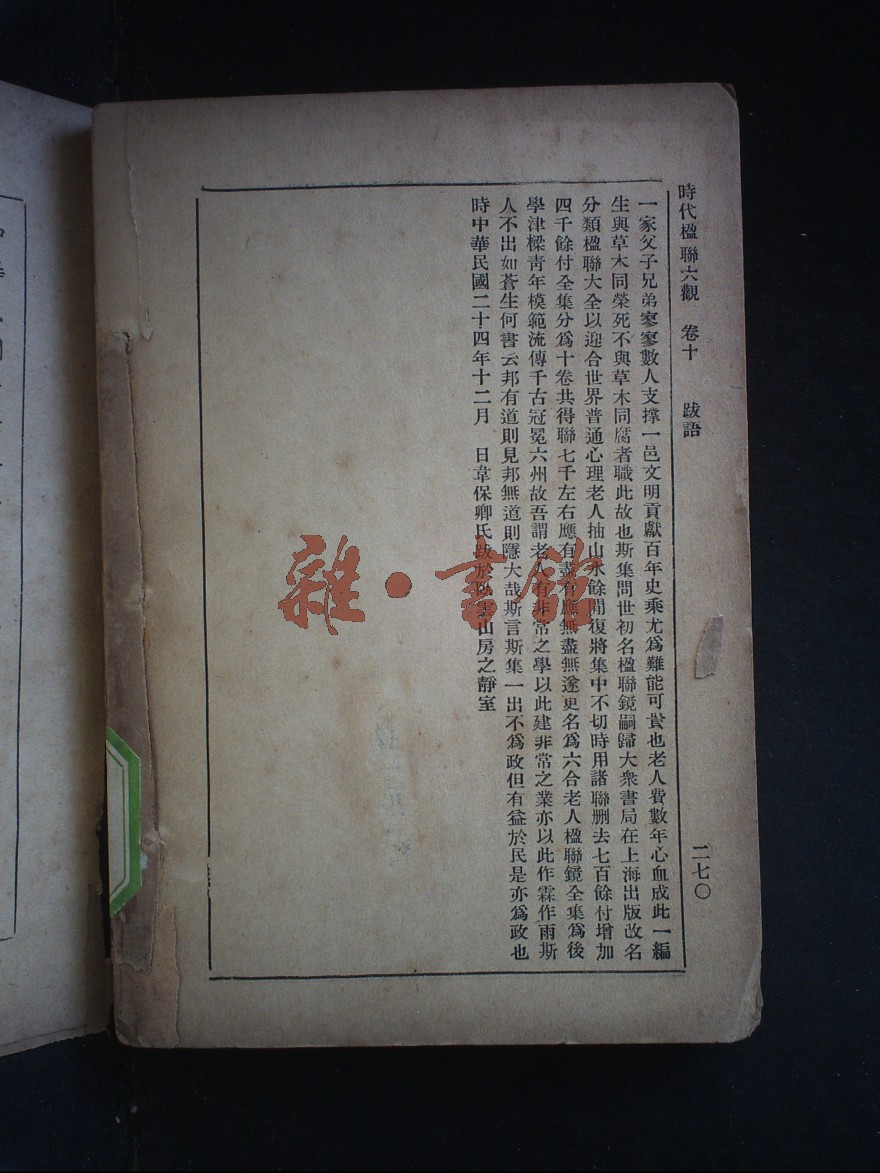 時代楹聯六觀 卷十 跋語 二七〇
一家父子兄弟寥寥數人支撐一邑文明貢獻百年史乘尤爲難能可貴也老人費數年心血成此一編
生與草木同榮死不與草木同腐者職此故也斯集問世初名楹聯鏡嗣歸大衆書局在上海出版改名
分類楹聯大全以迎合世界普通心理老人抽山水餘閒復將集中不切時用諸聯删去七百餘付增加
四千餘付全集分爲十卷共得聯七千左右應有盡有應無盡無遂更名爲六合老人楹聯鏡全集爲後
學津樑靑年模範流傳千古冠冕六州故吾謂老人有非常之學以此建非常之業亦以此作霖作雨斯
人不出如蒼生何書云邦有道則見邦無道則隱大哉斯言斯集一出不爲政但有益於民是亦爲政也
時中華民國二十四年十二月 日韋保卿氏跋於 山房之靜室
雜·書館